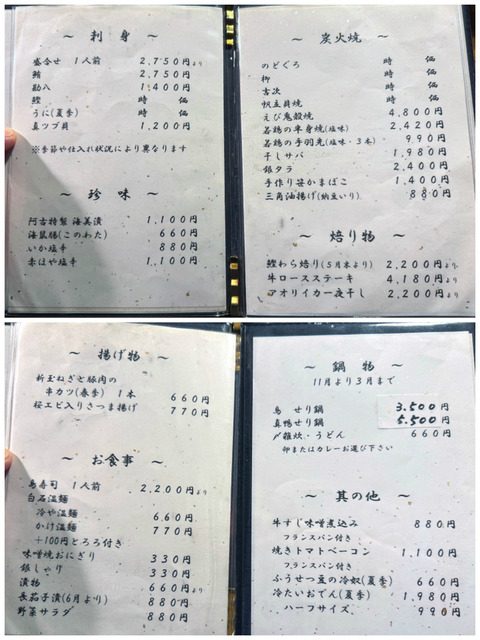 ～ 刺 身 ～
盛合せ 1人前 2,750円より
鮪 2,750円
勘八 1,400円
鰹 時 価
うに(夏季) 時 価
真ツブ貝 1,200円
※季節や仕入れ状況により異なります
～ 珍 味 ～
阿古特製 海美漬 1,100円
海鼠腸(このわた) 660円
いか塩辛 880円
赤ほや塩辛 1,100円
～ 炭火焼 ～
のどぐろ 時 価
柳 時 価
吉次 時 価
帆立貝焼 時 価
えび鬼殻焼 4,800円
若鶏の半身焼(塩味) 2,420円
若鶏の手羽先(塩味・3本) 990円
干しサバ 1,980円
銀タラ 2,400円
手作り笹かまぼこ 1,400円
三角油揚げ(納豆いり) 880円
～ 焙り物 ～
鰹わら焙り(5月末より) 2,200円より
牛ロースステーキ 4,180円より
アオリイカ一夜干し 2,200円より
～ 揚げ物 ～
新玉ねぎと豚肉の
串カツ(春季) 1本 660円
桜エビ入りさつま揚げ 770円
～ お食事 ～
島寿司 1人前 2,200円より
白石温麺
冷や温麺 660円
かけ温麺 770円
+100円とろろ付き
味噌焼おにぎり 330円
銀しゃり 330円
漬物 660円より
長茄子漬(6月より) 880円
野菜サラダ 880円
～ 鍋 物 ～
11月より3月まで
鳥 せり鍋 3.500円
真鴨せり鍋 5.500円
〆雑炊・うどん 660円
卵またはカレーお選び下さい
～ 其の他 ～
牛すじ味噌煮込み 880円
フランスパン付き
焼きトマトベーコン 1,100円
フランスパン付き
ふうせつ豆の冷奴(夏季) 660円
冷たいおでん(夏季) 1,980円
ハーフサイズ 990円